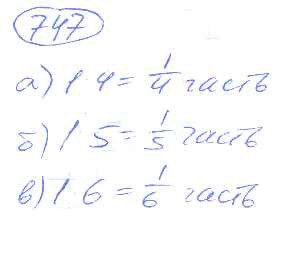 747
а) 1 4 = 1/4 часть
б) 1 5 = 1/5 часть
в) 1 6 = 1/6 часть